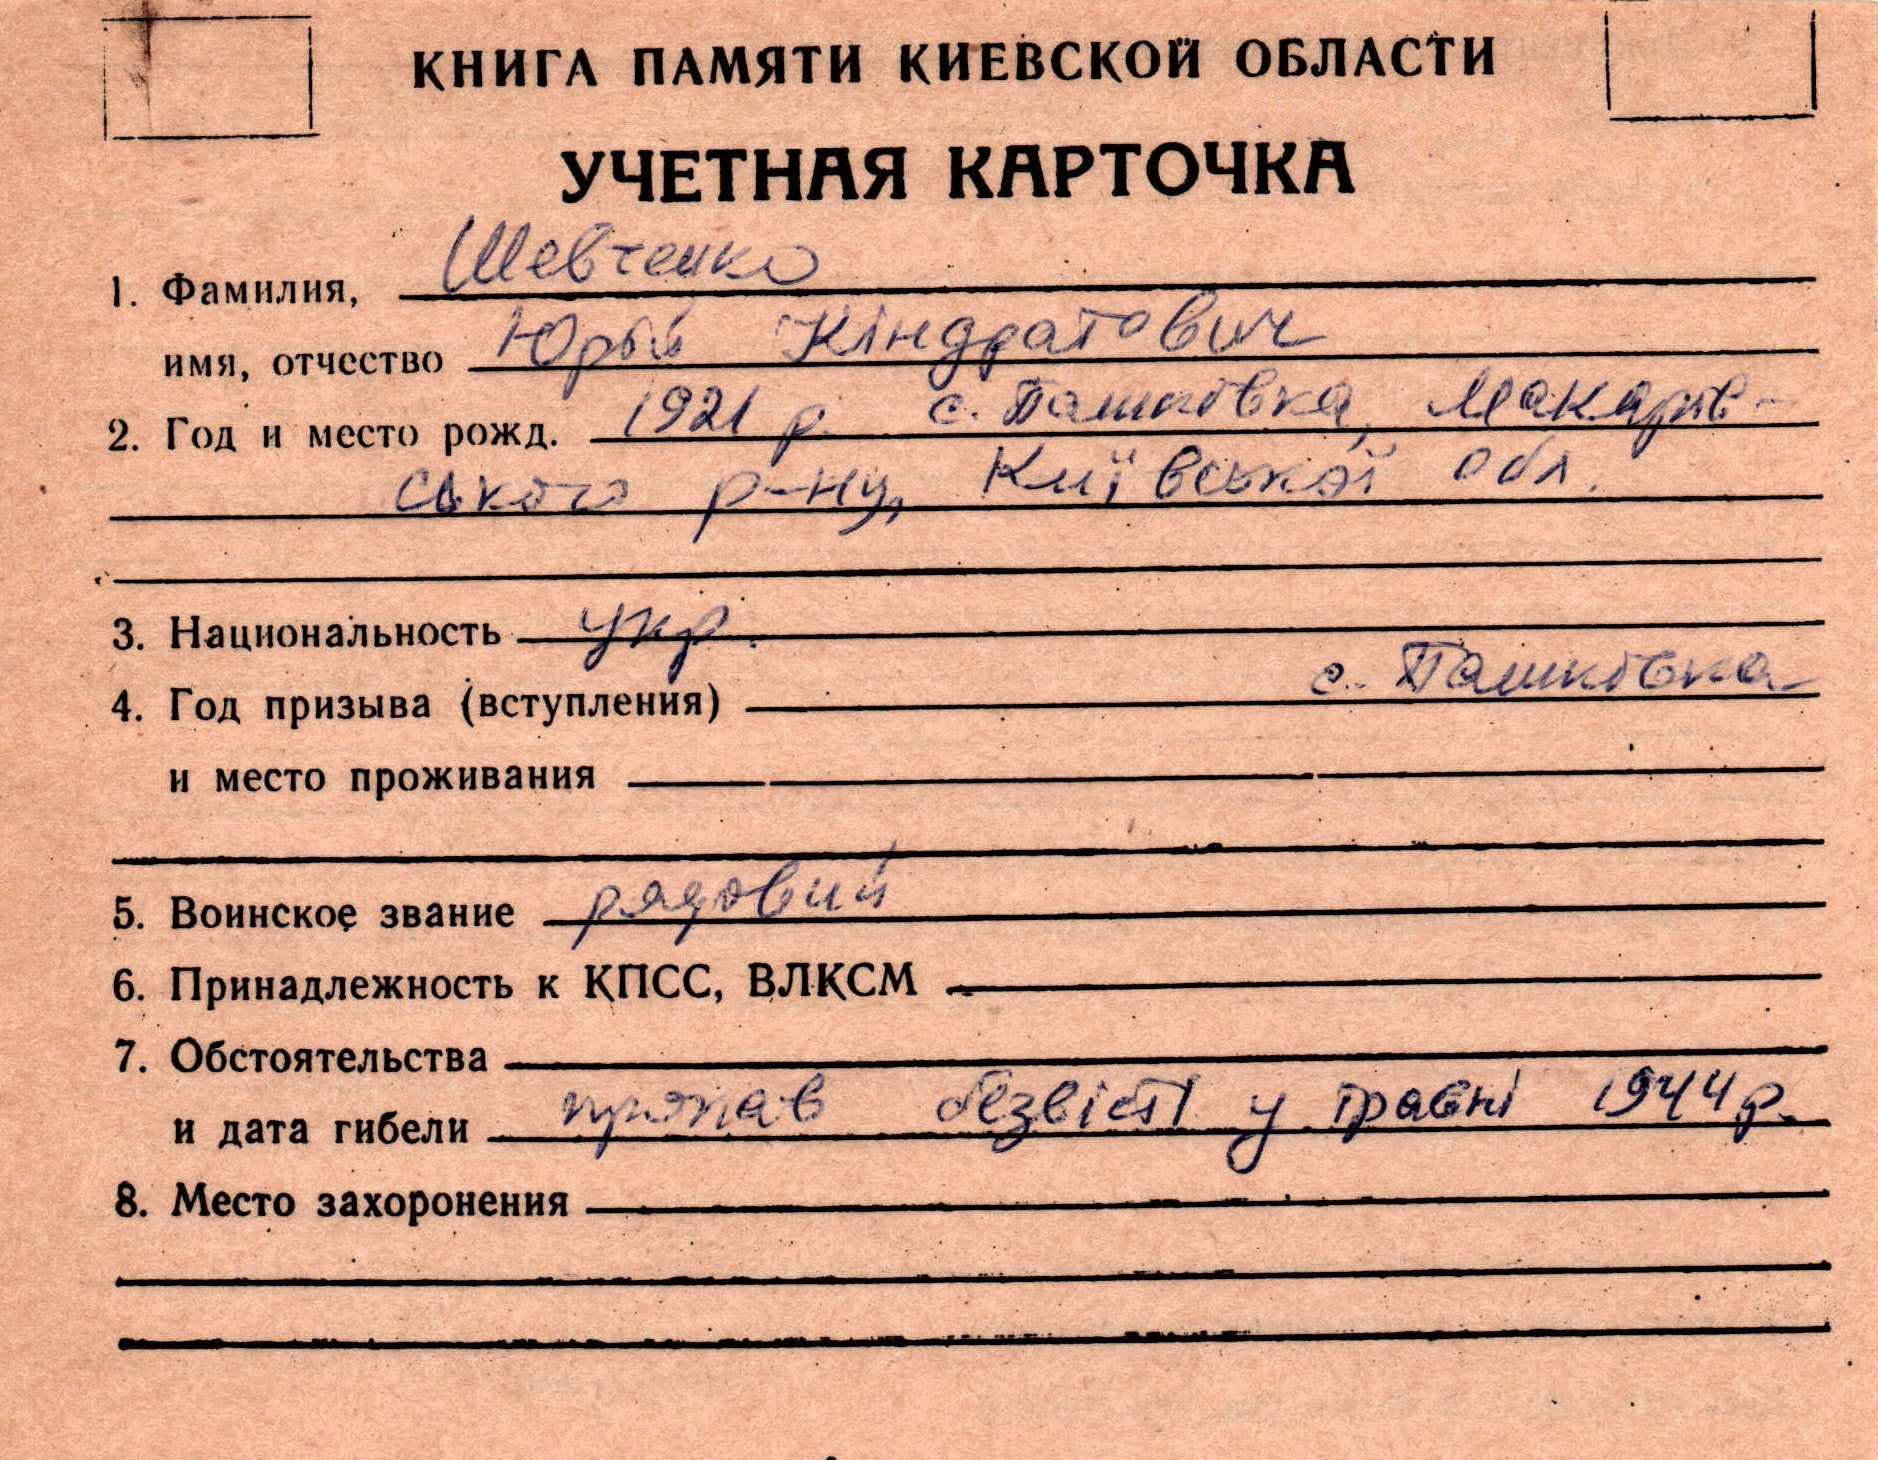 КНИГА ПАМЯТИ КИЕВСКОЙ ОБЛАСТИ
УЧЕТНАЯ КАРТОЧКА
1. Фамилия, Шевченко
имя, отчество Юрій Кіндратович
2. Год и место рожд. 1921 р. с. Пашківка, Макарів-
ського р-ну, Київської обл.
3. Национальность укр.
4. Год призыва (вступления) с. Пашківка
и место проживания
5. Воинское звание рядовий
6. Принадлежность к КПСС, ВЛКСМ
7. Обстоятельства
и дата гибели пропав безвісті у травні 1944 р.
8. Место захоронения